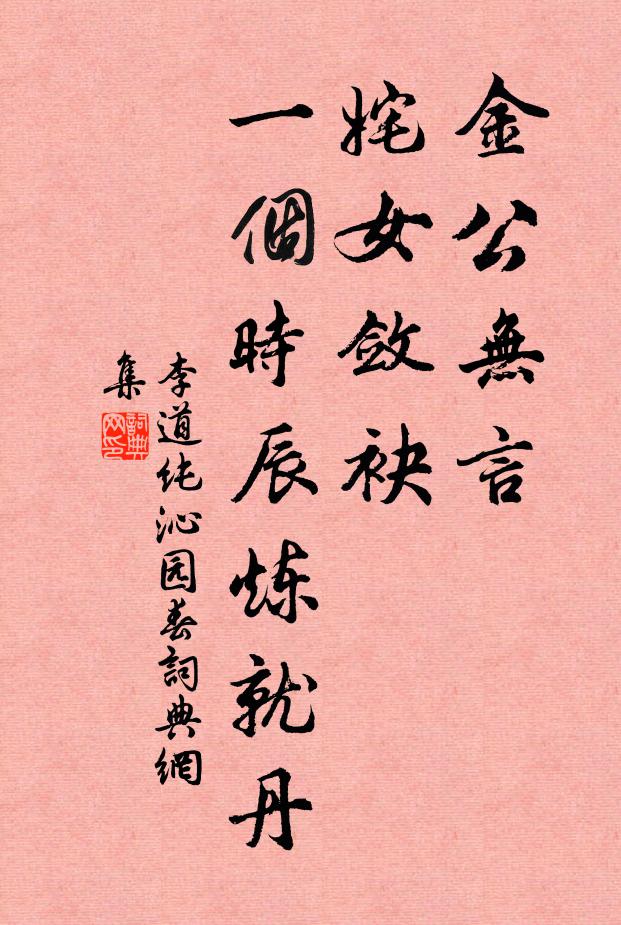 金公無言
姹女斂袂
一個時辰炼就丹
李道纯沁园春詞典網
集
詞典
网印